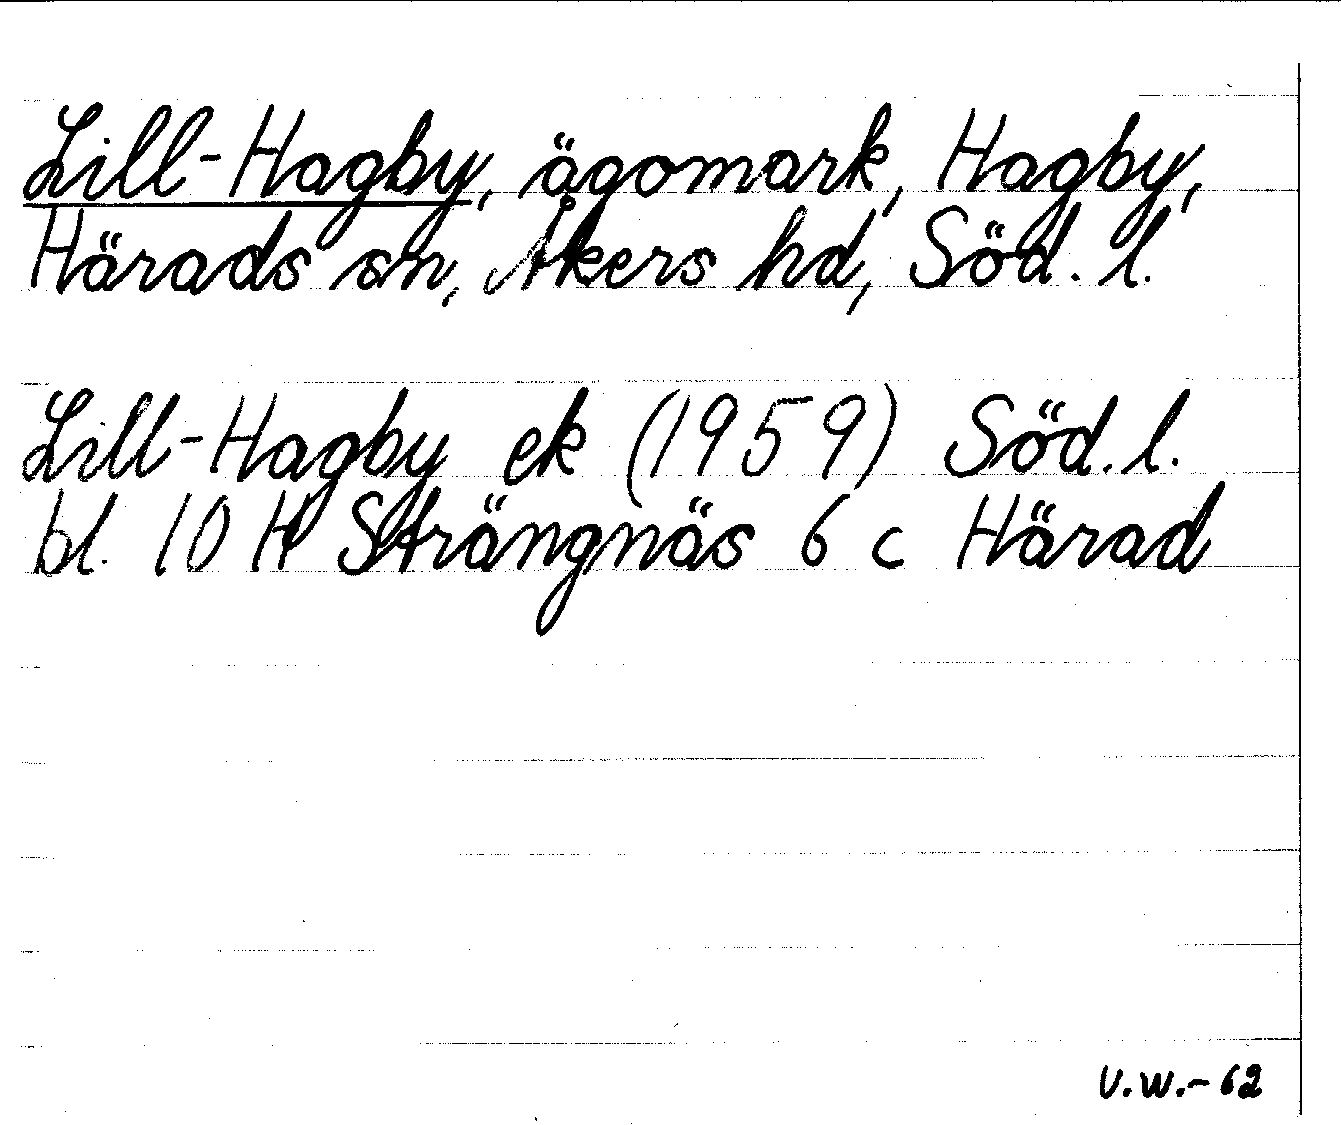 Lill-Hagby, ägomark, Hagby,
Härads sn, Åkers hd, Söd. l.
Lill-Hagby ek (1959) Söd. l.
bl. 10 H Strängnäs 6 c Härad
U.W.-62